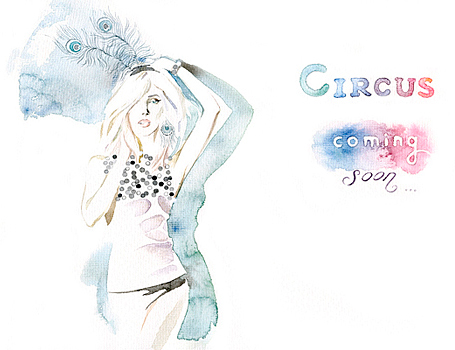 CIRCUS
coming
soon...